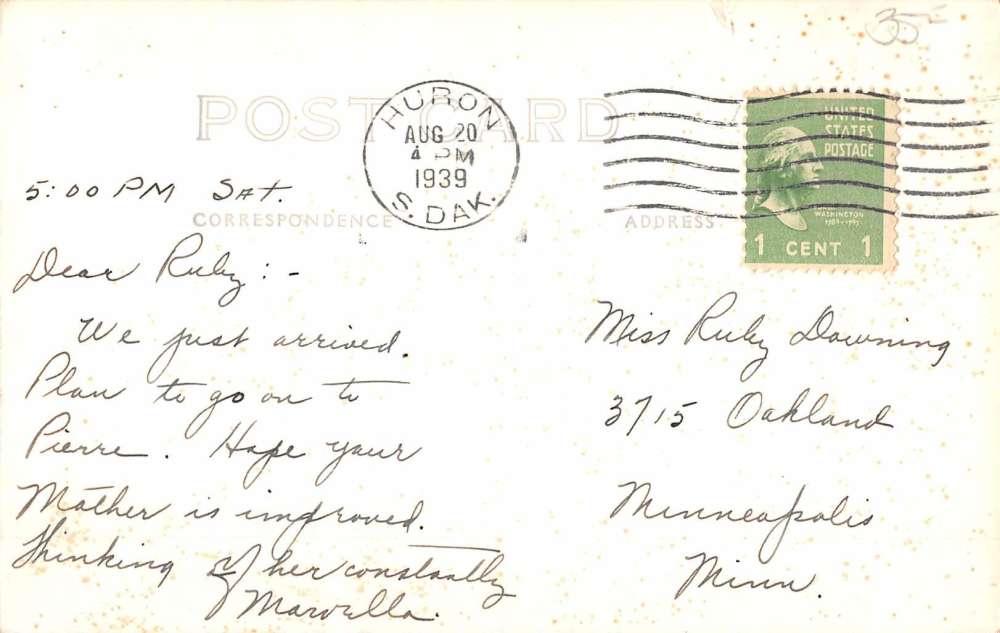 35-
POST CARD
HURON
AUG 20
4 PM
1939
S. DAK.
UNITED
STATES
POSTAGE
WASHINGTON
1 CENT 1
CORRESPONDENCE
ADDRESS
5:00 PM Sat.
Dear Ruby:-
We just arrived.
Plan to go on to
Pierre. Hope your
Mother is improved.
Thinking of her constantly
Marvella.
Miss Ruby Downing
3715 Oakland
Minneapolis
Minn.